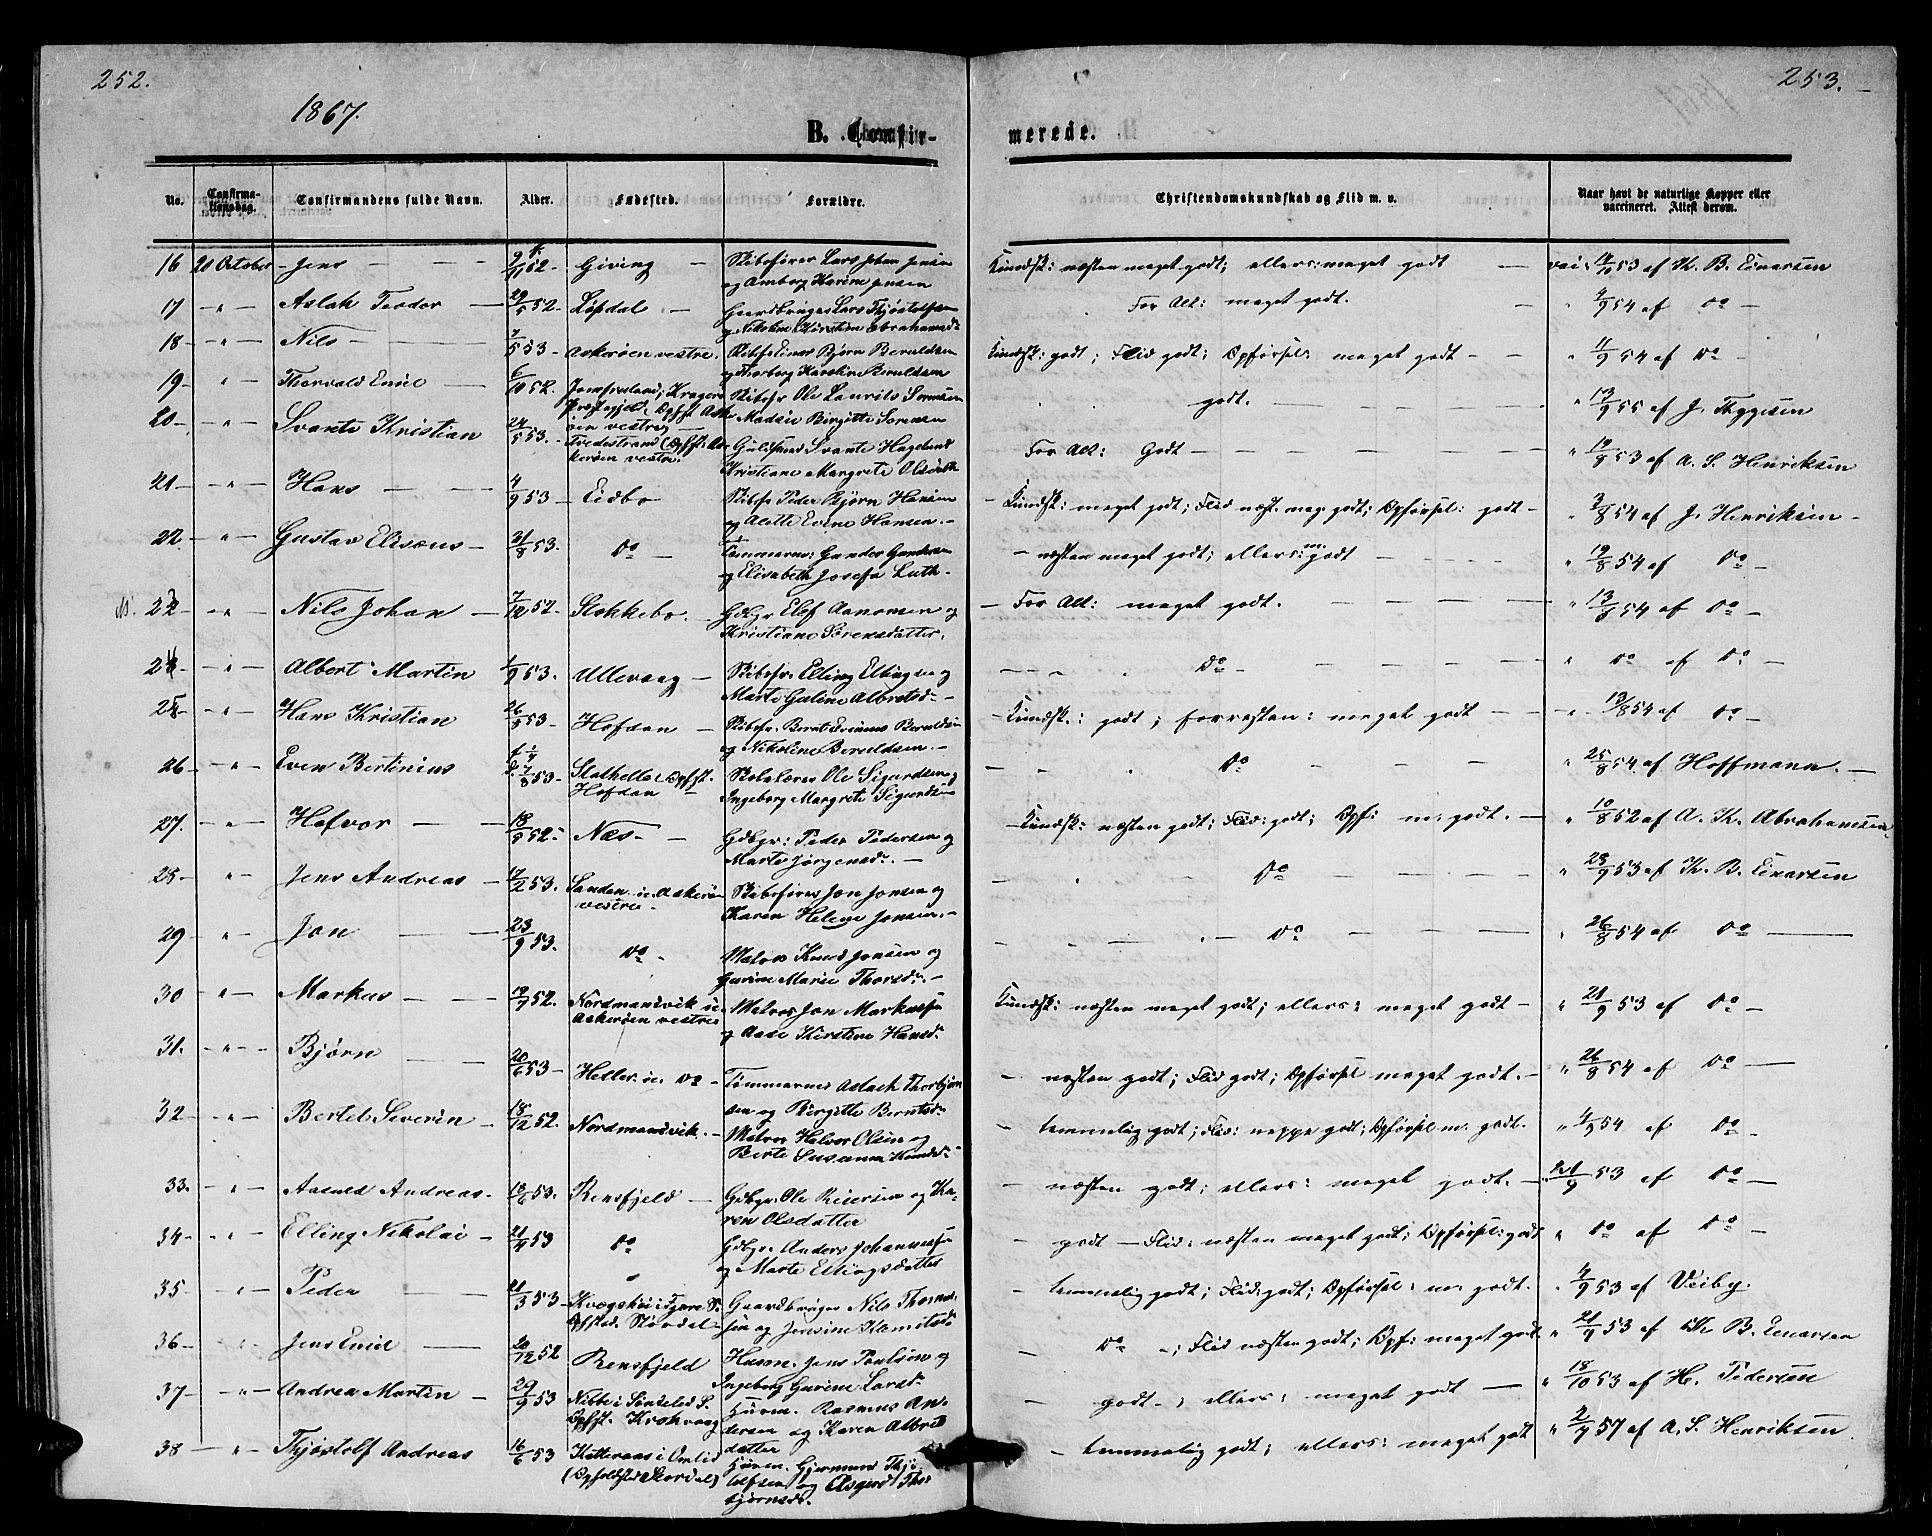 252.
253.
1867.
B. Confir-
merede.
No.
Confirma-
tionsdag.
Confirmandens fulde Navn.
Alder.
Fødested.
Forældre.
Christendomskundskab og Flid m. v.
Naar havt de naturlige Kopper eller
vaccineret. Attest derom.
16 20 October Jens 9/11 52 Giving Skibsfører Lars Johan Jensen
og Amborg Karine Jensen
Kundsk: næsten meget godt; ellers: meget godt vac: 14/10 53 af K. B. Einarsen
17 " Aslak Teodor 29/5 52 Løfdal Gaardbruger Lars Thjøstolfsen
og Nikoline Kirstine Abrahamsd.
For Alt: meget godt. " 4/9 54 af Do
18 " Nils 7/5 53 Askerøen vestre Skibsf. Einar Bjørn Beruldsen
og Thorborg Karoline Beruldsen
Kundsk: godt; Flid godt; Opførsel: meget godt " 11/9 54 af Do
19 " Thorvald Emil 6/10 52 Jomfruland, Kragerø
Præstegjeld, Opfst Aske
øen vestre
Skibsfr Ole Laurits Sørensen
Madsie Birgitte Sørensen
godt. " 13/9 55 af J. Thygesen
20 " Svante Kristian 24/5 53. Tvedestrand (Opfst: As-
kerøen vestre.
Guldsmed Svante Haglund
Kristiane Margrete Olsdatt
For Alt: Godt " 19/8 53 af A. S. Henriksen
21 " Hans 4/9 53 Eidbo Skibsfr Peder Bjørn Hansen
og Alette Evine Hansen.
Kundsk: meget godt; Flid næst. meg. godt; Opførsel: godt " 3/8 54 af J. Henriksen
22. " Gustav Elisæus 21/8 53. Do Tømmerm: Gunder Gundersen
og Elisabeth Josefa Luth.
næsten meget godt; ellers: m. godt " 19/8 54 af Do
23 " Nils Johan 7/12 52. Stokkebo. Gdbgr Elef Aanonsen og
Kristiane Sørensdatter.
For Alt: meget godt. " 13/9 54 af Do
24 " Albert Martin 1/9 53. Ullevaag Skibsfr. Elling Ellingsen og
Marte Gurine Albretsd.
Do " Do af Do
25 " Hans Kristian 26/9 53 Hofdan Skibsfr. Bernt Evinus Beruldsen
og Nikoline Beruldsen.
Kundsk.: godt; forresten: meget godt " 19/8 54 af Do
26 " Even Bertinius 7/8 53 Stathelle Opfst.
Hofdan
Skolelærer Ole Sigurdsen og
Ingeborg Margrete Sigurdsen
Do " 25/8 54. af Hoffmann.
27. " Hafvor 18/9 52 Næs Gdbgr: Peder Pedersen og
Marte Jørgensd.
Kundsk: næsten godt; Flid: godt; Opf: m. godt. " 10/8 52 af A. K. Abrahamsen
28 " Jens Andreas 17/2 53. Sanden u. Askerøen
vestre
Skibsfører Jon Jonsen og
Karen Helene Jonsen.
Do " 23/9 53 af K. B. Einarsen
29 " Jon 23/9 53. Do Matros Knud Jonsen og
Gurine Marie Thorsd.
Do " 26/8 54 af Do
30 " Markus 19/7 52. Nordmandsvik u.
Askerøen vestre
Matros Jon Markussen
og Aase Kirstine Hansd.
Kundsk: næsten meget godt; ellers: meget godt " 21/9 53 af Do
31. " Bjørn 20/6 53 Heller u. Do Tømmerm Aslach Thorbjørn
sen og Birgitte Berntsd.
næsten godt; Flid godt; Opførsel meget godt. " 26/8 54 af Do
32 " Bertel Severin 18/12 52. Nordmandsvik. Matros Halvor Olsen og
Birte Susanna Knudsd.
temmelig godt; Flid: neppe godt; Opførsel m. godt. " 4/9 54 af Do
33. " Aanuld Andreas 13/6 53. Rensfjeld Gdbgr. Ole Reiersen og Ka-
ren Olsdatter
næsten godt; ellers: meget godt. 21/9 53 af Do
34 " Elling Nikolai 21/4 53 Do Gdbgr. Anders Johannesen
og Marte Ellingsdatter
godt Flid: næsten meget godt; Opførsel: godt " Do af Do
35 " Peder 21/3 53 Kvægskei i Gjere S.
Opfsted Størdal
Gaardbruger Nils Thomas-
sen og Jensine Klemetsd.
temmelig godt; Flid: godt; Opførsel: m. godt. " 4/9 53 af Veiby
36 " Jens Emil 20/12 52 Rensfjeld Husm. Jens Paulsen og
Ingeborg Gurine Larsd.
Do; Flid næsten godt; Opf: meget godt " 21/9 53 af K. B. Einarsen
37 " Andrea Martin 29/9 53 Nibbe i Søndeled S.
Opfst. Krokvaag
Husm. Rasmus An-
dersen og Karen Albret
datter
godt; ellers: meget godt " 18/10 53 af H. Pedersen
38 " Thjøstolf Andreas 16/6 53 Katteraas i Omlid
(Opholdsted Størdal)
Husm. Gjermund Thjø
olfsen og Asgjerd Thor
bjørnsd.
temmelig godt; ellers: meget godt " 2/7 57 af A. S. Henriksen.